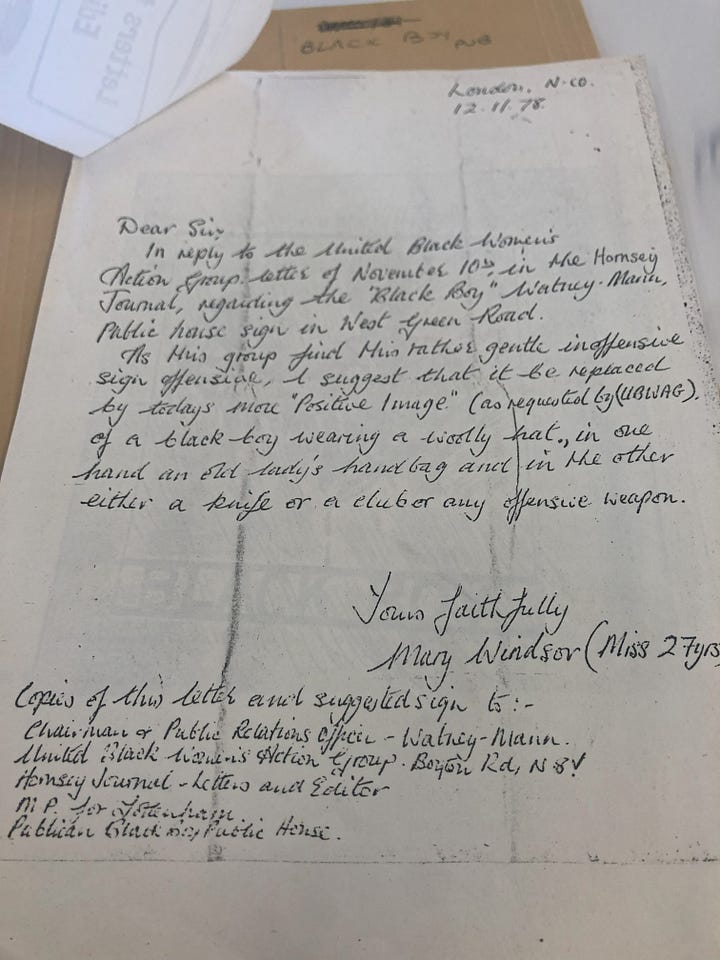 Letters
Edi
BLACK BOY PUB
London, N.10.
12.11.78.
Dear Sir,
In reply to the United Black Women's
Action Group letter of November 10th, in the Hornsey
Journal, regarding the "Black Boy" Watney-Mann,
Public house sign in West Green Road.
As this group find this rather gentle inoffensive
sign offensive, I suggest that it be replaced
by todays more "Positive Image" (as requested by (UBWAG).
of a black boy wearing a woolly hat, in one
hand an old lady's handbag and in the other
either a knife or a club or any offensive weapon.
Yours faithfully
Mary Windsor (Miss 27yrs
Copies of this letter and suggested sign to:-
Chairman & Public Relations Officer - Watney-Mann.
United Black Women's Action Group. Boyton Rd, N.8
Hornsey Journal - Letters and Editor
M.P. for Tottenham.
Publican Black Boy Public House.